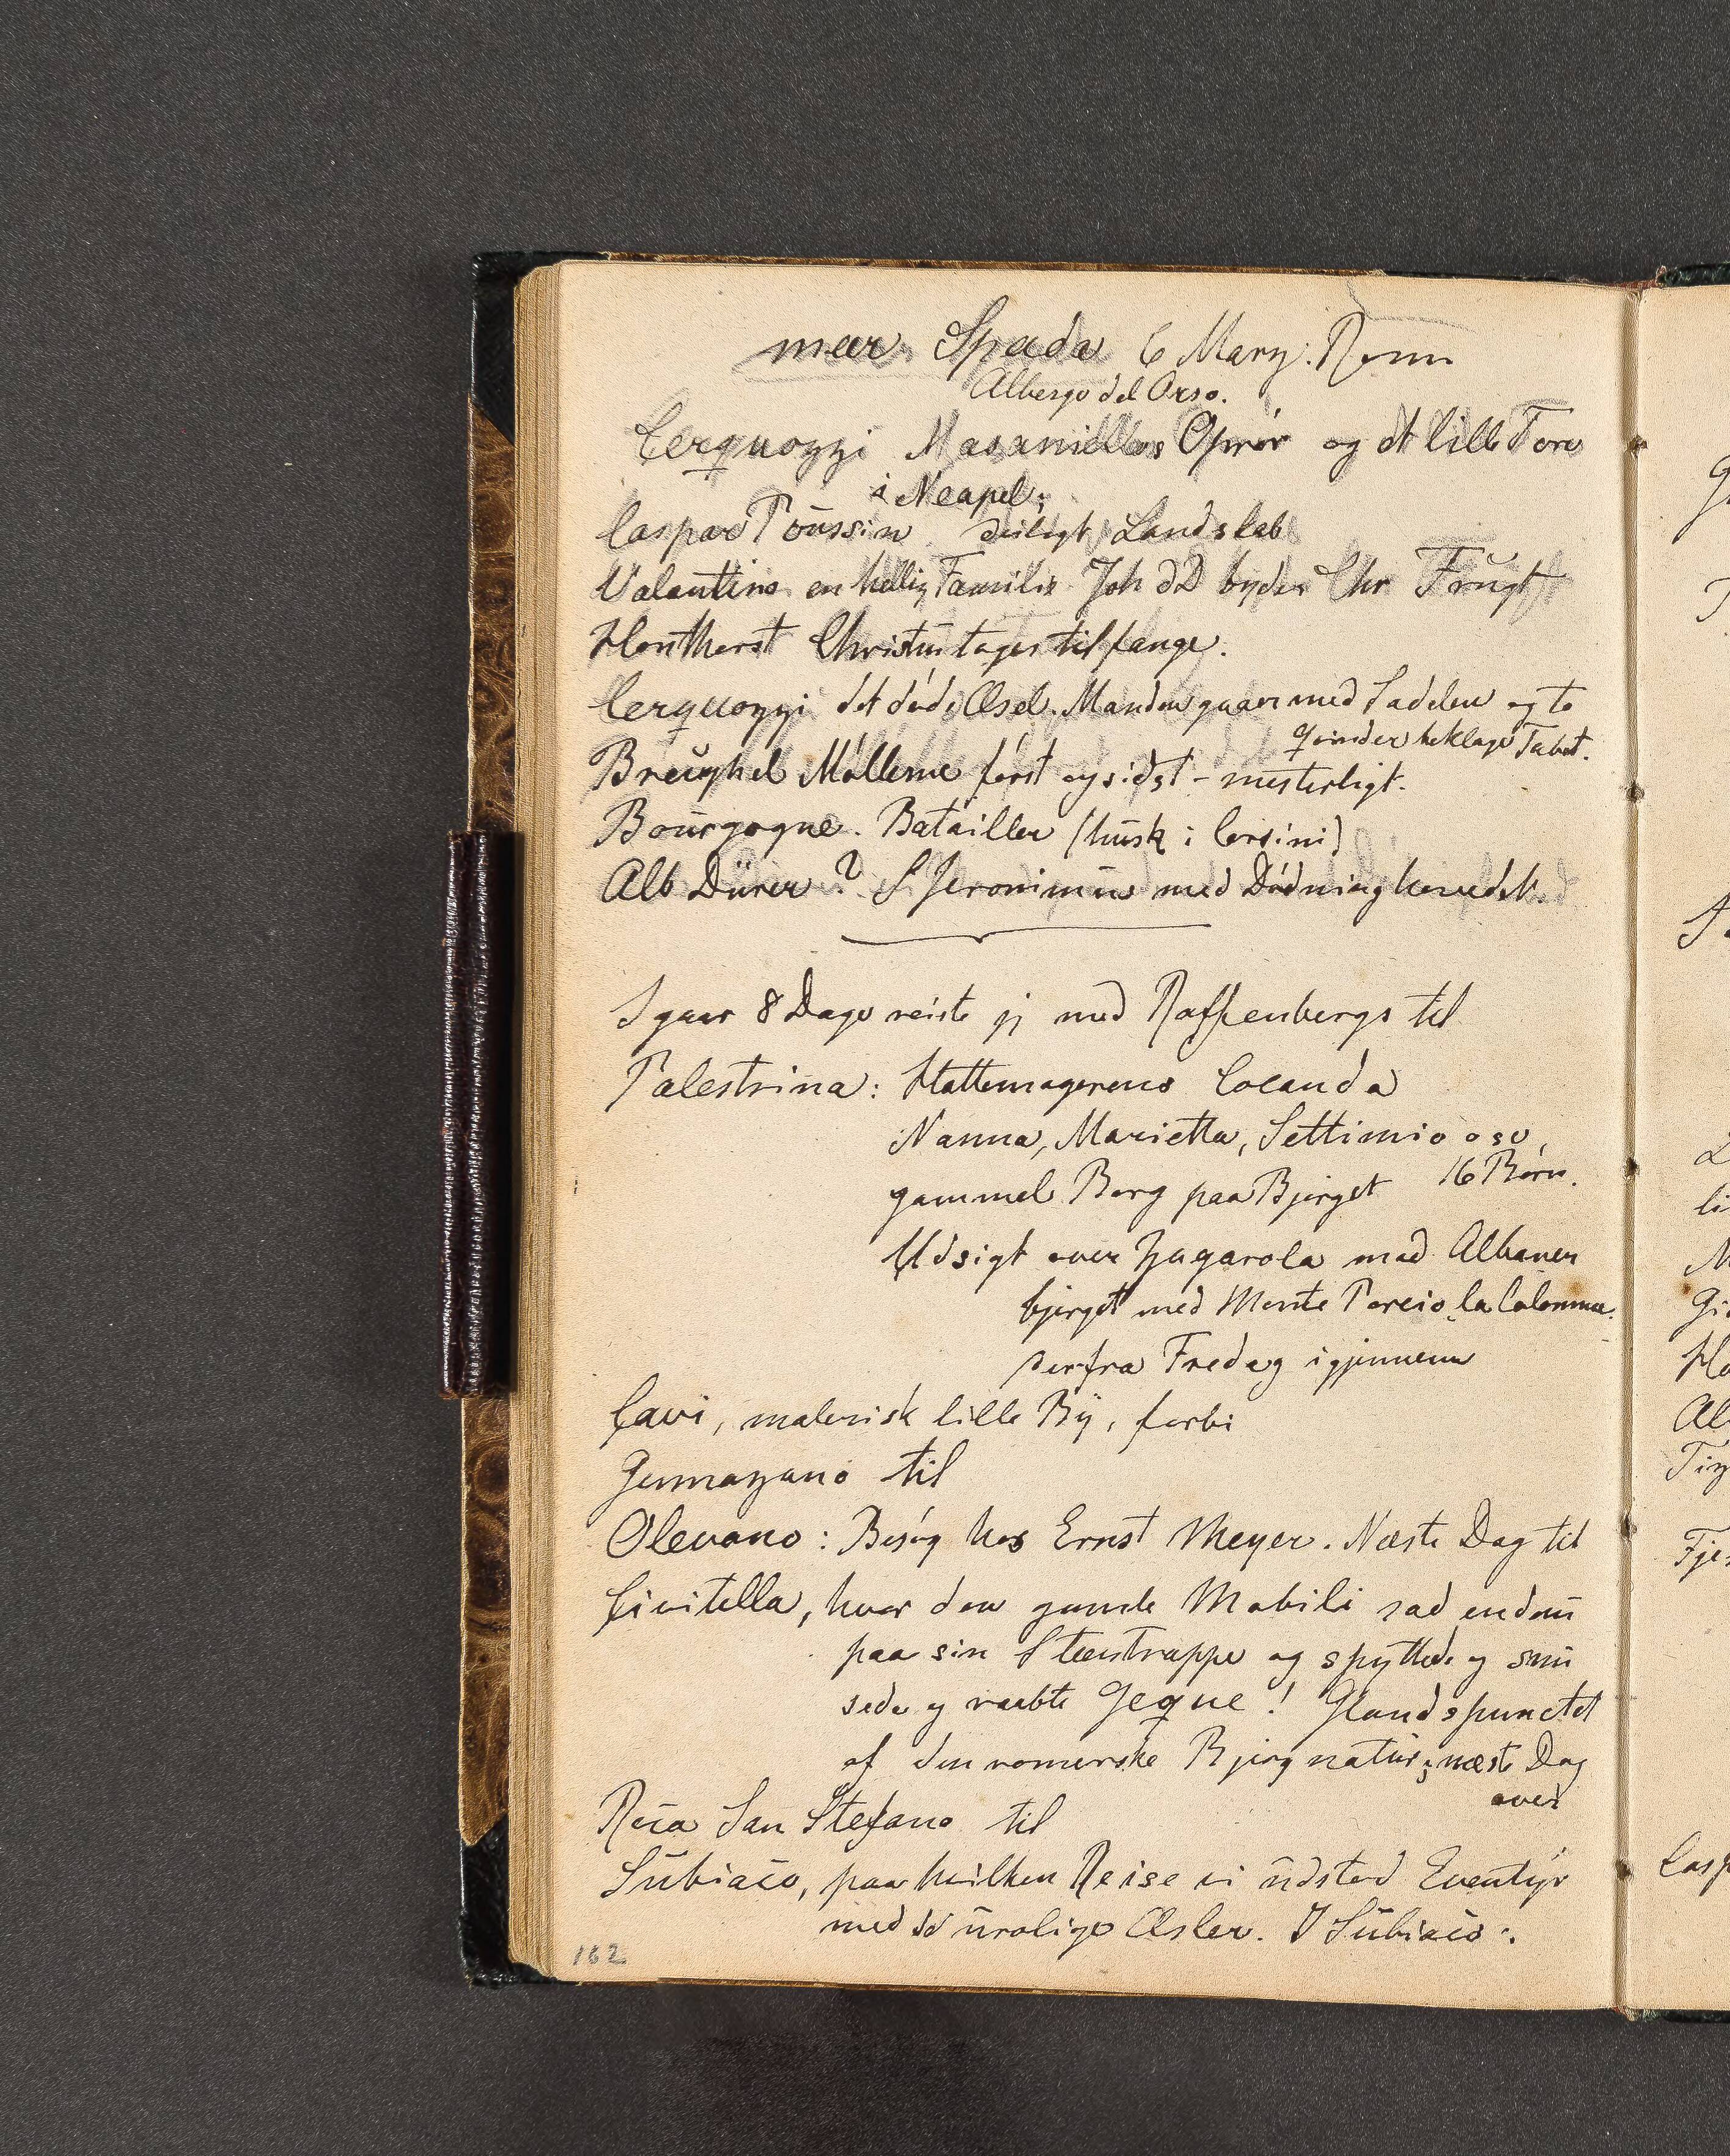 Spada 6 Marz. Rom
Albergo del Orso.
Cerquozzi Masaniellos Oprör og det lille Torv
i Neapel;
Caspar Poussin deiligt Landskab
Valentino en hellig Familie Joh d D byder Chr Frugt
Honthorst Christus tages tilfange.
Cerquozzi det döde Æsel. Manden gaaer med Sadelen og to
Qvinder beklage Tabet.
Breughel Möllerne först og sidst – mesterligt.
Bourgogne. Batailler (husk i Corsini)
Alb Dürer? S Jeronimus med Dödninghovedet.
Igaar 8 Dage reiste jeg med Raffenbergs til
Palestrina: Hattemagerens Locanda
Nanna, Marietta, Settimio osv,
16 Börn.
gammel Borg paa Bjerget
Udsigt over Zagarola mod Albaner
bjerget med Monte Porcio, la Colonna.
derfra Fredag igjennem
Cavi, malerisk lille By, forbi
Gennazano til
Olevano: Besög hos Ernst Meyer. Næste Dag til
Civitella, hvor den gamle Mobili sad endnu
paa sin Steentrappe og spyttede og snu
sede og raabte Geque! Glandspunctet
af den romerske Bjergnatur; næste Dag
over
Roca San Stefano til
Subiaco, paa hvilken Reise vi udstod Eventyr
med urolige Æsler. I Subiaco:
162
G
T
L
li
M
Gi
Ho
Al
Fje
Casp